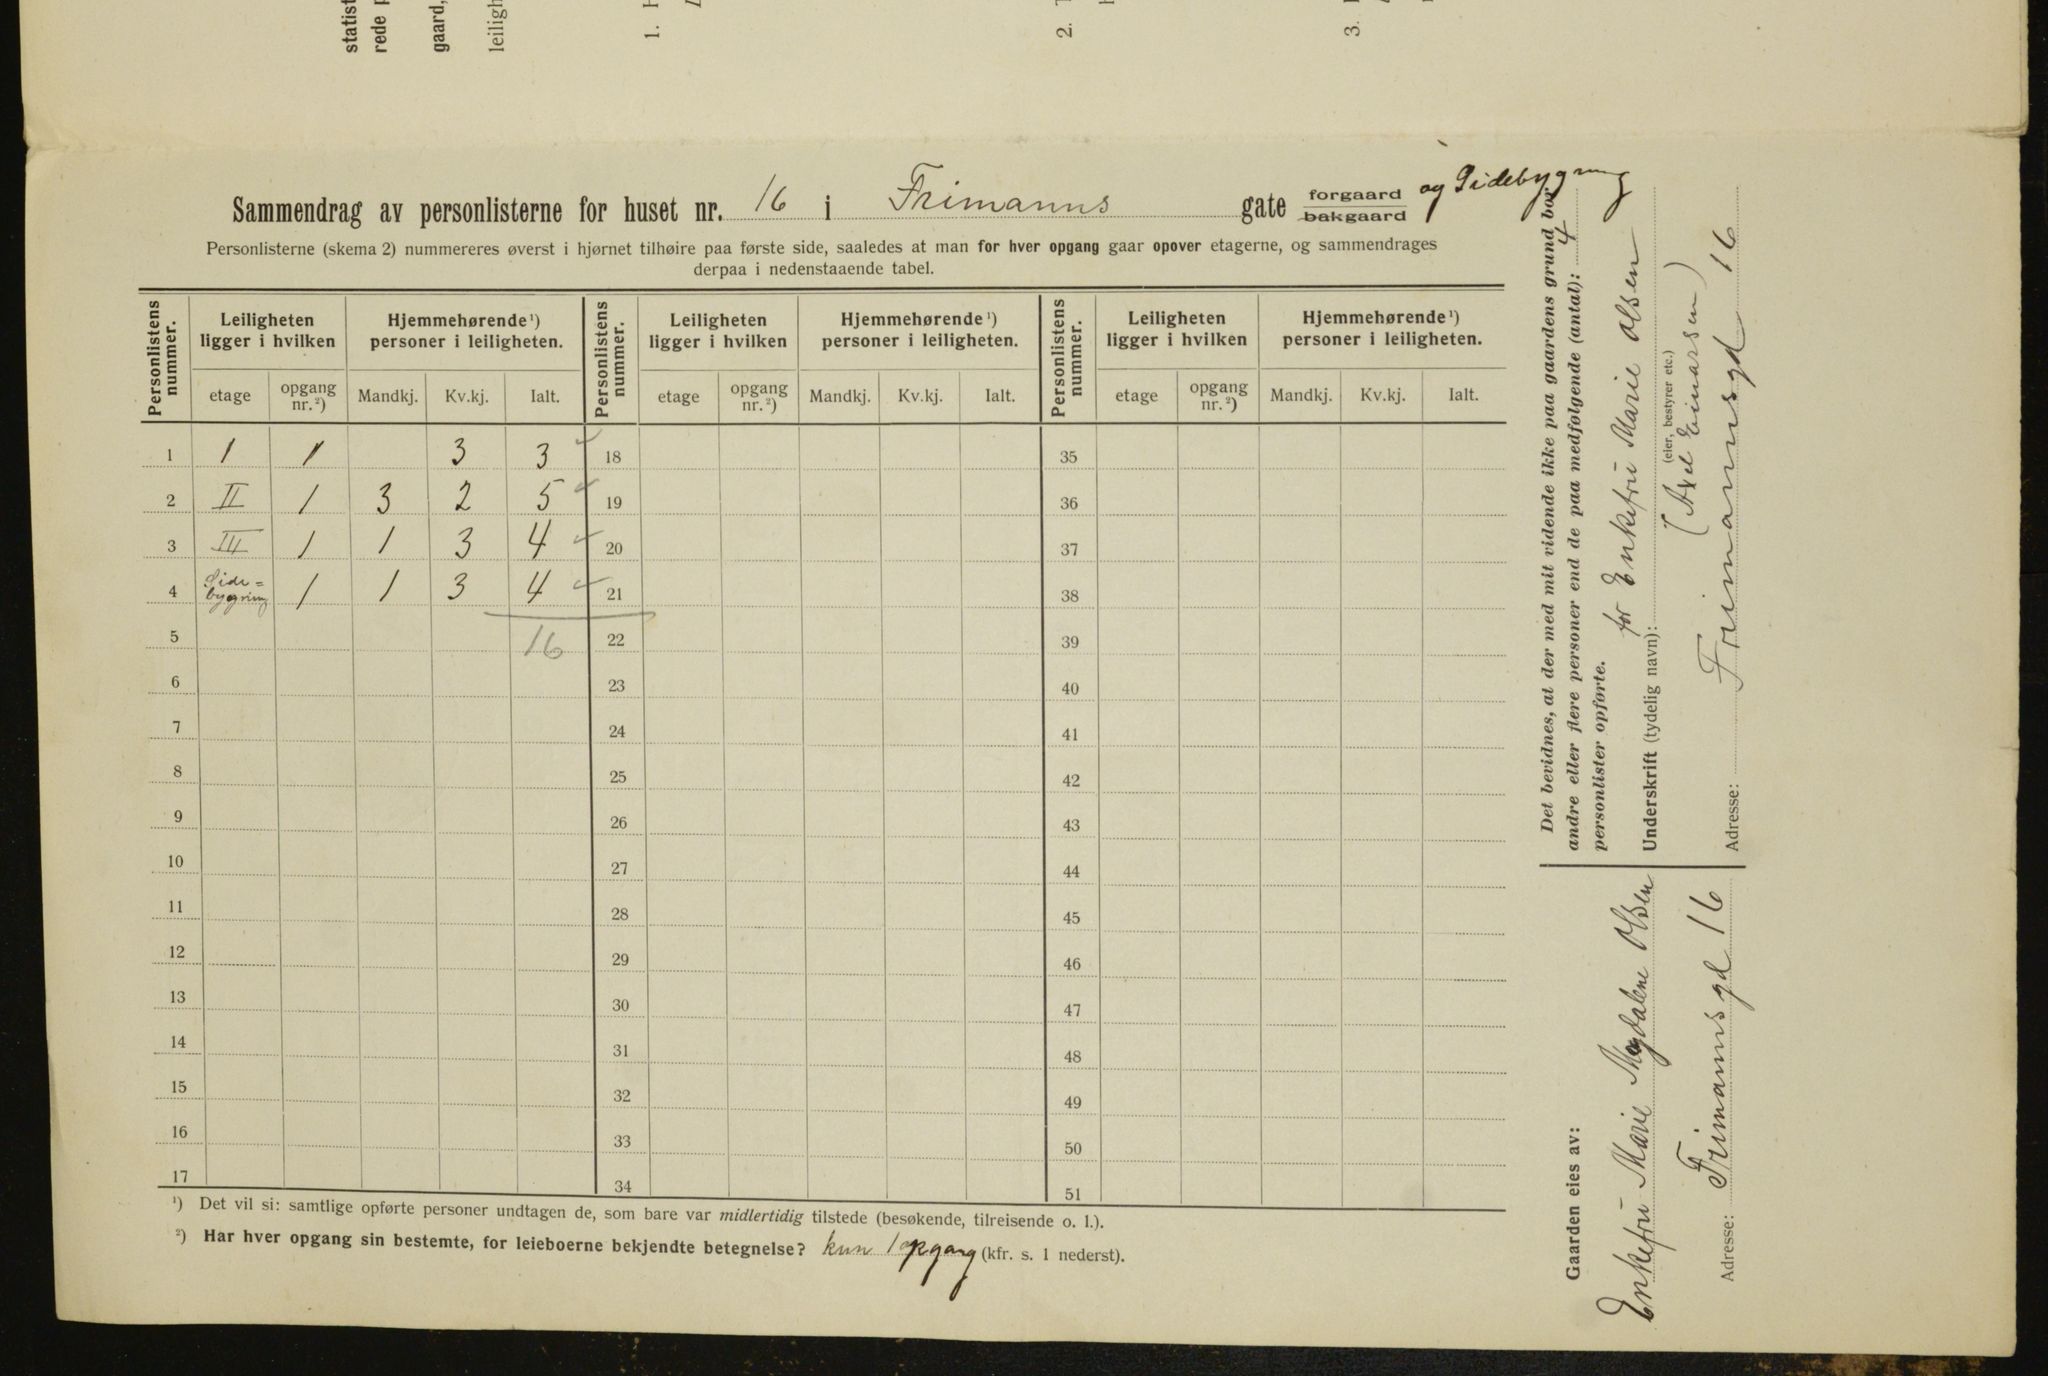 statist
rede p
gaard,
leiligh
1.
2.
3.
Sammendrag av personlisterne for huset nr. 16 i Frimanns gate forgaard og Sidebygning
bakgaard
Personlisterne (skema 2) nummereres øverst i hjørnet tilhøire paa første side, saaledes at man for hver opgang gaar opover etagerne, og sammendrages
derpaa i nedenstaaende tabel.
Personlistens nummer. Leiligheten ligger i hvilken Hjemmehørende ¹) personer i leiligheten. Personlistens nummer. Leiligheten ligger i hvilken Hjemmehørende ¹) personer i leiligheten. Personlistens nummer. Leiligheten ligger i hvilken Hjemmehørende ¹) personer i leiligheten.
etage opgang nr. ²) Mandkj. Kv.kj. Ialt. etage opgang nr. ²) Mandkj. Kv.kj. Ialt. etage opgang nr. ²) Mandkj. Kv.kj. Ialt.
1 1 1 3 3 18 35
2 II 1 3 2 5 19 36
3 III 1 1 3 4 20 37
4 Side= bygning 1 1 3 4 21 38
5 16 22 39
6 23 40
7 24 41
8 25 42
9 26 43
10 27 44
11 28 45
12 29 46
13 30 47
14 31 48
15 32 49
16 33 50
17 34 51
¹) Det vil si: samtlige opførte personer undtagen de, som bare var midlertidig tilstede (besøkende, tilreisende o. l.).
²) Har hver opgang sin bestemte, for leieboerne bekjendte betegnelse? kun 1 opgang (kfr. s. 1 nederst).
Det bevidnes, at der med mit vidende ikke paa gaardens grund bor
andre eller flere personer end de paa medfølgende (antal): 4
personlister opførte.
for Enkefru Marie Olsen
Underskrift (tydelig navn):
(eier, bestyrer etc.)
(Axel Einarsen)
Adresse: Frimannsgd 16
Gaarden eies av:
Enkefru Marie Magdalene Olsen
Adresse: Frimannsgd 16